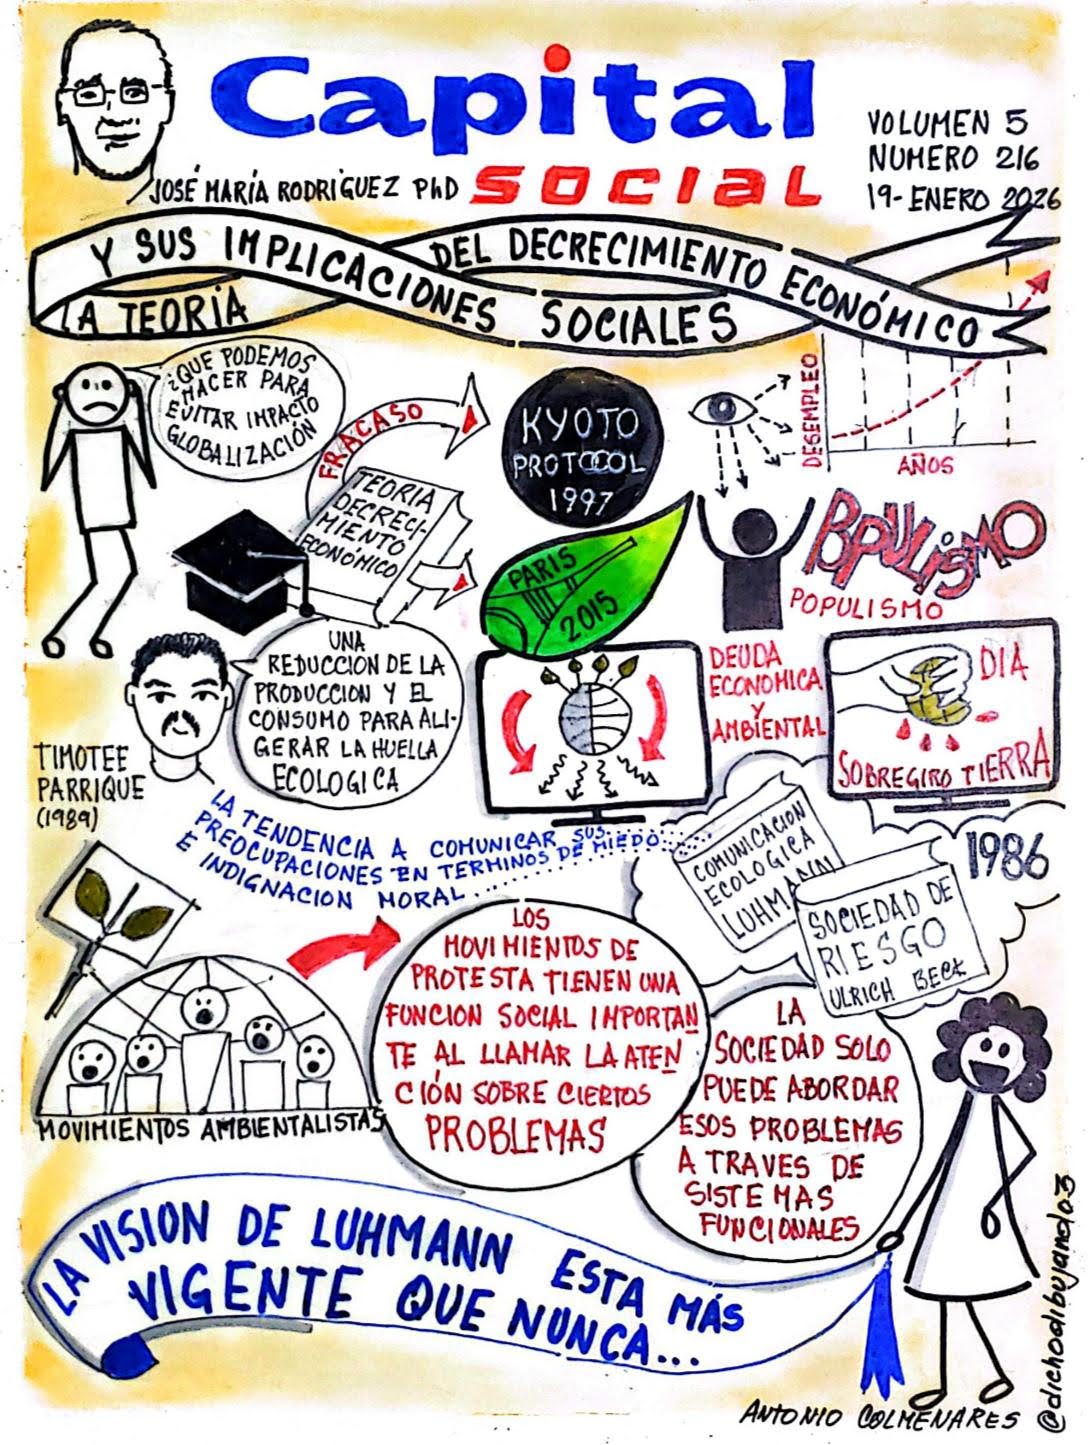 Capital
SOCIAL
JOSÉ MARÍA RODRIGUEZ PhD
VOLUMEN 5
NUMERO 216
19-ENERO 2026
LA TEORÍA
DEL DECRECIMIENTO ECONÓMICO
Y SUS IMPLICACIONES SOCIALES
¿QUE PODEMOS
HACER PARA
EVITAR IMPACTO
GLOBALIZACIÓN
FRACASO
KYOTO
PROTOCOL
1997
DESEMPLEO
AÑOS
TEORIA
DECRECI-
MIENTO
ECONÓMICO
PARIS
2015
POPULISMO
POPULISMO
UNA
REDUCCION DE LA
PRODUCCION Y EL
CONSUMO PARA ALI-
GERAR LA HUELLA
ECOLOGICA
TIMOTEE
PARRIQUE
(1989)
DEUDA
ECONOMICA
Y
AMBIENTAL
DIA
SOBREGIRO TIERRA
LA TENDENCIA A COMUNICAR SUS
PREOCUPACIONES EN TERMINOS DE MIEDO
E INDIGNACION MORAL..........
COMUNICACION
ECOLOGICA
LUHMANN
1986
SOCIEDAD DE
RIESGO
ULRICH BECK
MOVIMIENTOS AMBIENTALISTAS
LOS
MOVIMIENTOS DE
PROTESTA TIENEN UNA
FUNCION SOCIAL IMPORTAN
TE AL LLAMAR LA ATEN
CIÓN SOBRE CIERTOS
PROBLEMAS
LA
SOCIEDAD SOLO
PUEDE ABORDAR
ESOS PROBLEMAS
A TRAVES DE
SISTEMAS
FUNCIONALES
LA VISION DE LUHMANN ESTA MÁS
VIGENTE QUE NUNCA...
ANTONIO COLMENARES
@dichodibujando3